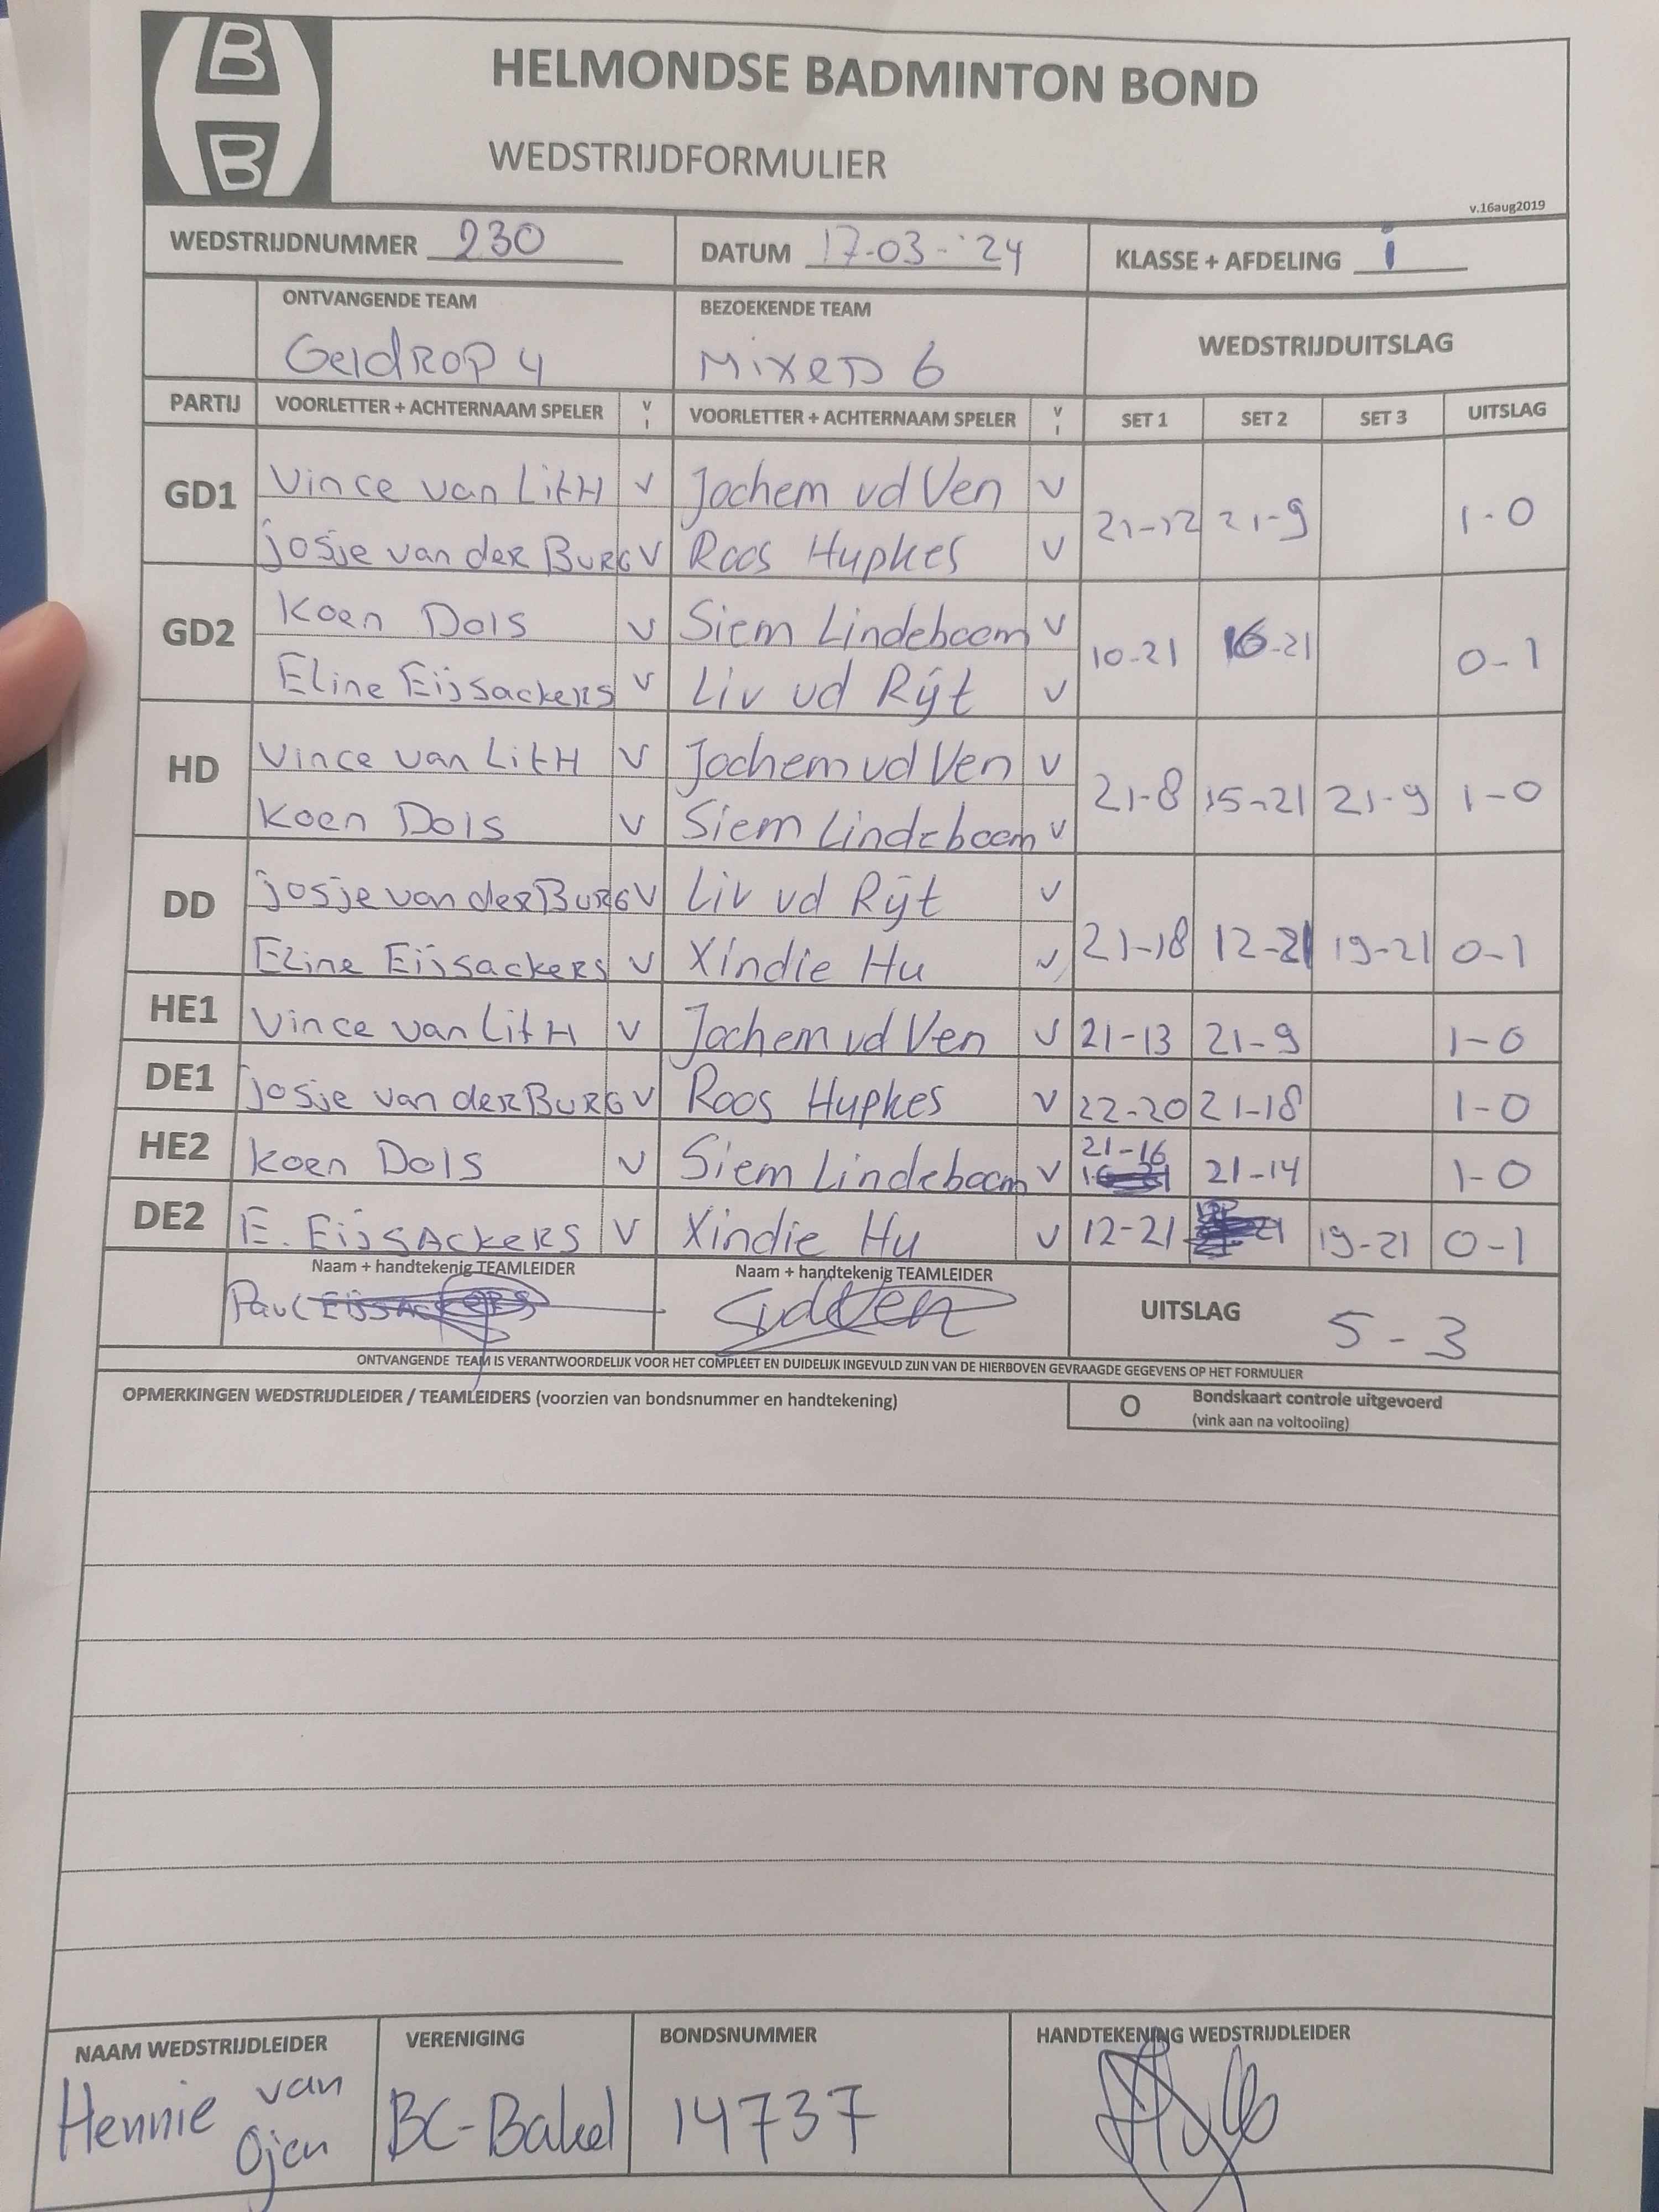 HELMONDSE BADMINTON BOND
WEDSTRIJDFORMULIER
v.16aug2019
WEDSTRIJDNUMMER 230 DATUM 17-03-'24 KLASSE + AFDELING i
ONTVANGENDE TEAM BEZOEKENDE TEAM WEDSTRIJDUITSLAG
GeldROP 4 MixeD 6
PARTIJ VOORLETTER + ACHTERNAAM SPELER V I VOORLETTER + ACHTERNAAM SPELER V I SET 1 SET 2 SET 3 UITSLAG
GD1 Vince van LitH V Jochem vd Ven V 21-12 21-9 1-0
josje van der BURG V Roos Hupkes V
GD2 Koen Dols V Siem Lindeboom V 10-21 16-21 0-1
Eline Eijsackers V Liv vd Rijt V
HD Vince van LitH V Jochem vd Ven V 21-8 15-21 21-9 1-0
Koen Dols V Siem Lindeboom V
DD josje van der BURG V Liv vd Rijt V 21-18 12-21 19-21 0-1
Eline Eijsackers V Xindie Hu V
HE1 Vince van LitH V Jochem vd Ven V 21-13 21-9 1-0
DE1 josje van der BURG V Roos Hupkes V 22-20 21-18 1-0
HE2 Koen Dols V Siem Lindeboom V 21-16 21-14 1-0
DE2 E. EijsAckers V Xindie Hu V 12-21 21 19-21 0-1
Naam + handtekenig TEAMLEIDER Naam + handtekenig TEAMLEIDER UITSLAG 5-3
Paul Eijsackers
ONTVANGENDE TEAM IS VERANTWOORDELIJK VOOR HET COMPLEET EN DUIDELIJK INGEVULD ZIJN VAN DE HIERBOVEN GEVRAAGDE GEGEVENS OP HET FORMULIER
OPMERKINGEN WEDSTRIJDLEIDER / TEAMLEIDERS (voorzien van bondsnummer en handtekening) O Bondskaart controle uitgevoerd
(vink aan na voltooiing)
NAAM WEDSTRIJDLEIDER VERENIGING BONDSNUMMER HANDTEKENING WEDSTRIJDLEIDER
Hennie van Ojen BC-Bakel 14737